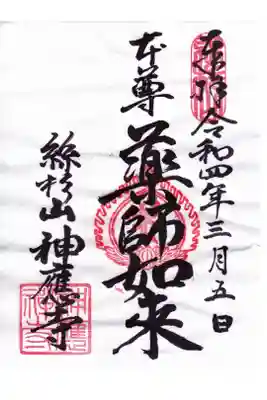 奉拝 令和四年三月五日
本尊
薬師如来
絲杉山 神應寺